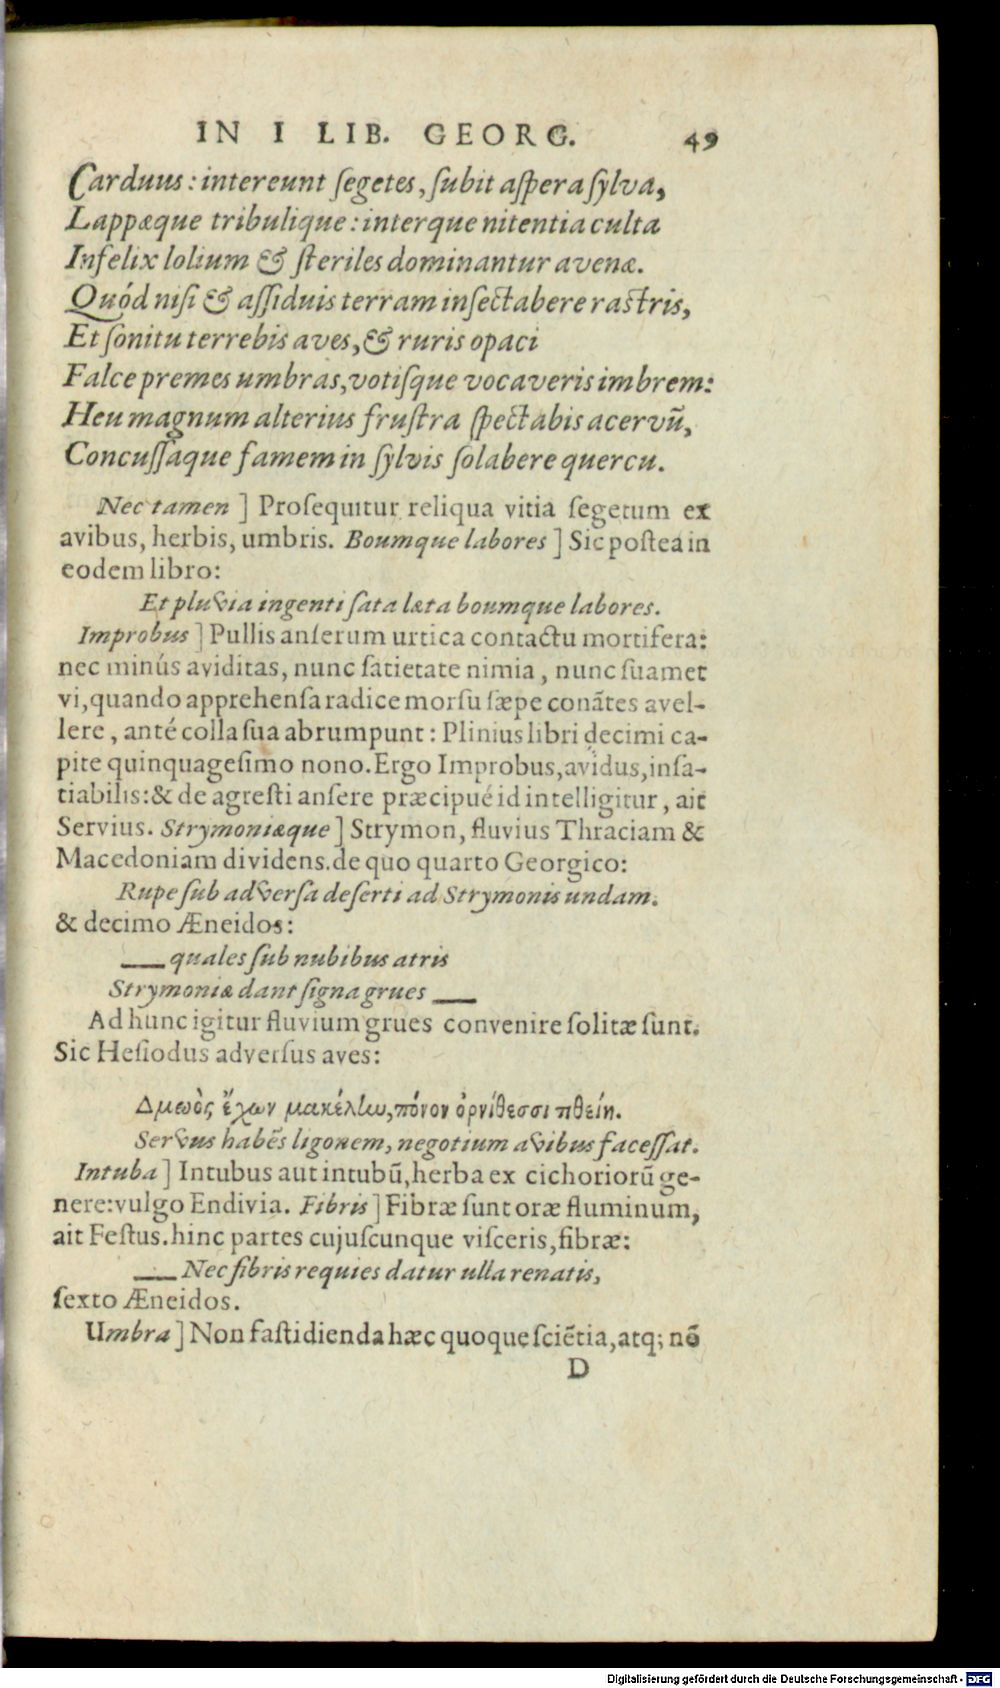 IN I LIB. GEORG. 49
Carduus: intereunt ſegetes, ſubit aſpera ſylva,
Lappæque tribulique: interque nitentia culta
Infelix lolium & ſteriles dominantur avenæ.
Quód niſi & aſſiduis terram inſectabere raſtris,
Et ſonitu terrebis aves, & ruris opaci
Falce premes umbras, votiſque vocaveris imbrem:
Heu magnum alterius fruſtra ſpectabis acervũ,
Concuſſaque famem in ſylvis ſolabere quercu.
Nec tamen ] Proſequitur reliqua vitia ſegetum ex
avibus, herbis, umbris. Boumque labores ] Sic poſtea in
eodem libro:
Et pluvia ingenti ſata læta boumque labores.
Improbus ] Pullis anſerum urtica contactu mortifera:
nec minús aviditas, nunc ſatietate nimia, nunc ſuamet
vi, quando apprehenſa radice morſu ſæpe conãtes avel-
lere, anté colla ſua abrumpunt: Plinius libri decimi ca-
pite quinquageſimo nono. Ergo Improbus, avidus, inſa-
tiabilis: & de agreſti anſere præcipué id intelligitur, ait
Servius. Strymoniæque ] Strymon, fluvius Thraciam &
Macedoniam dividens. de quo quarto Georgico:
Rupe ſub adverſa deſerti ad Strymonis undam.
& decimo Æneidos:
___ quales ſub nubibus atris
Strymoniæ dant ſigna grues ___
Ad hunc igitur fluvium grues convenire ſolitæ ſunt.
Sic Heſiodus adverſus aves:
Δμωὸς ἔχων μακέλην, πόνον ὀρνίθεσσι τιθείη.
Servus habẽs ligonem, negotium avibus faceſſat.
Intuba ] Intubus aut intubũ, herba ex cichoriorũ ge-
nere: vulgo Endivia. Fibris ] Fibræ ſunt oræ fluminum,
ait Feſtus. hinc partes cujuſcunque viſceris, fibræ:
___ Nec fibris requies datur ulla renatis,
ſexto Æneidos.
Umbra ] Non faſtidienda hæc quoque ſciẽtia, atq; nõ
D
Digitalisierung gefördert durch die Deutsche Forschungsgemeinschaft - DFG